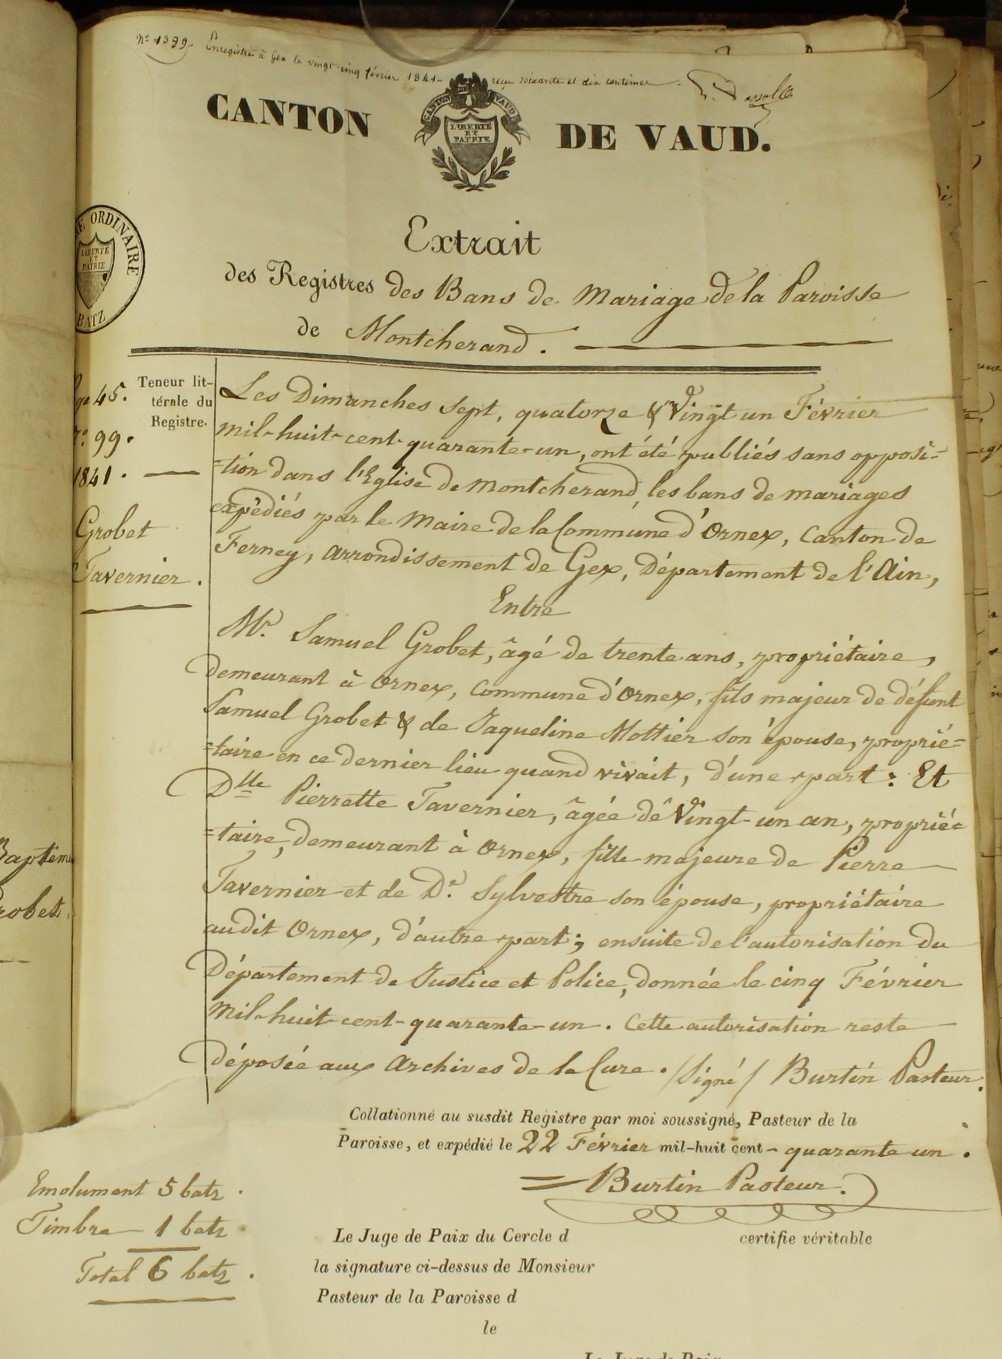 N° 1399. Enregistré à Gex le vingt cinq février 1841. reçu soixante et dix centimes.
CANTON DE VAUD.
CANTON DE VAUD
LIBERTÉ
ET
PATRIE
ORDINAIRE
LIBERTÉ
ET
PATRIE
BATZ
Extrait
des Registres des Bans de Mariage de la Paroisse
de Montcherand.
45.
99.
1841.
Grobet
Tavernier.
Teneur lit-
térale du
Registre.
Les Dimanches sept, quatorze & Vingt un Février
mil-huit-cent-quarante-un, ont été publiés sans opposi-
=tión dans l'Eglise de Montcherand les bans de mariages
expédiés par le Maire de la Commune d'Ornex, Canton de
Ferney, arrondissement de Gex, Département de l'Ain,
Entre
Mr. Samuel Grobet, âgé de trente ans, propriétaire,
demeurant à Ornex, Commune d'Ornex, fils majeur de défunt
Samuel Grobet & de Jaqueline Mottier son épouse, proprié=
=taire en ce dernier lieu quand vivait, d'une part: Et
Dlle Pierrette Tavernier, âgée de Vingt-un an, proprié=
=taire, demeurant à Ornex, fille majeure de Pierre
Tavernier et de De. Sylvestre son épouse, propriétaire
audit Ornex, d'autre part; ensuite de l'autorisation du
Département de Justice et Police, donnée le cinq Février
Mil-huit-cent-quarante-un. Cette autorisation reste
déposée aux Archives de la Cure. /Signé/ Burtin Pasteur.
Collationné au susdit Registre par moi soussigné, Pasteur de la
Paroisse, et expédié le 22 Février mil-huit cent-quarante un.
Burtin Pasteur.
Emolument 5 batz.
Timbre 1 batz
Total 6 batz.
Le Juge de Paix du Cercle d certifie véritable
la signature ci-dessus de Monsieur
Pasteur de la Paroisse d
le